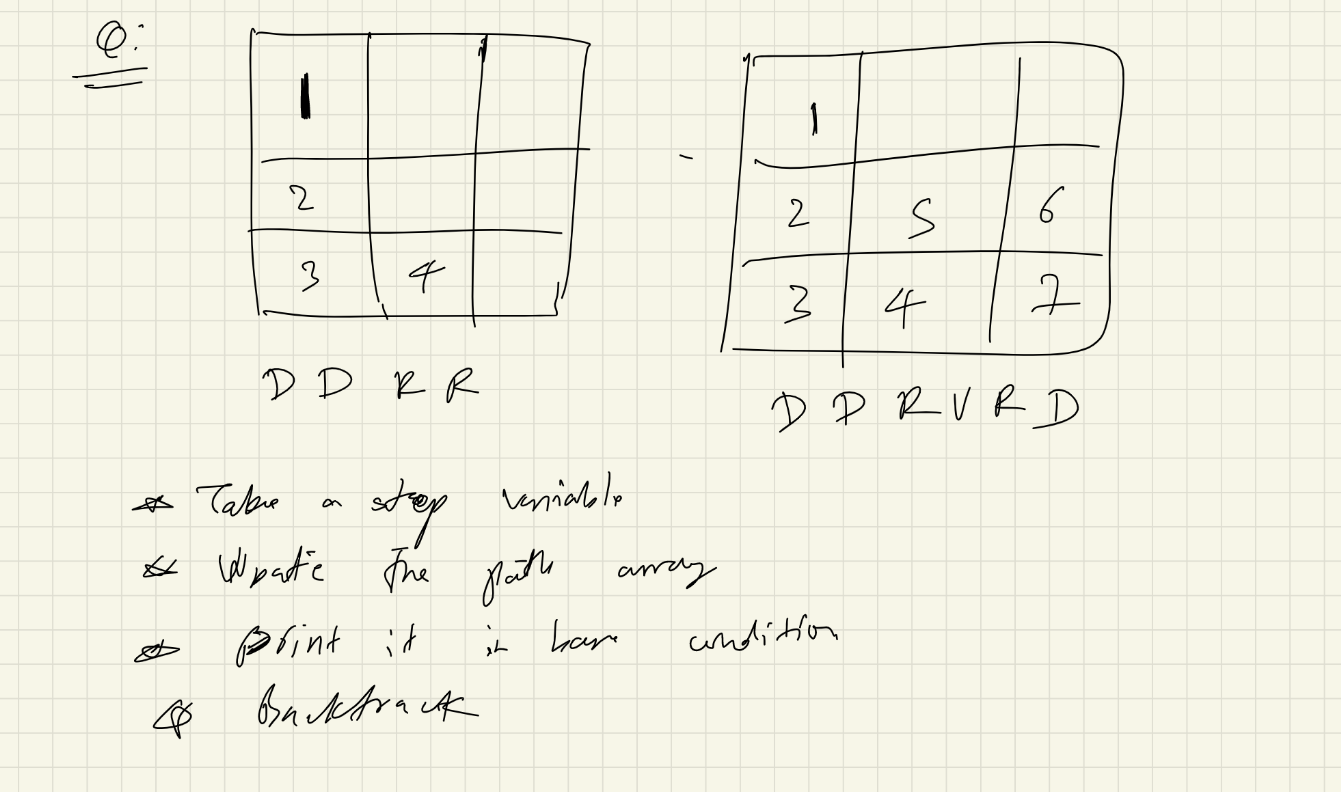 Q:
1
2
3 4
D D R R
1
2 5 6
3 4 7
D D R U R D
* Take a step variable
* Update the path array
* print it in base condition
* Backtrack